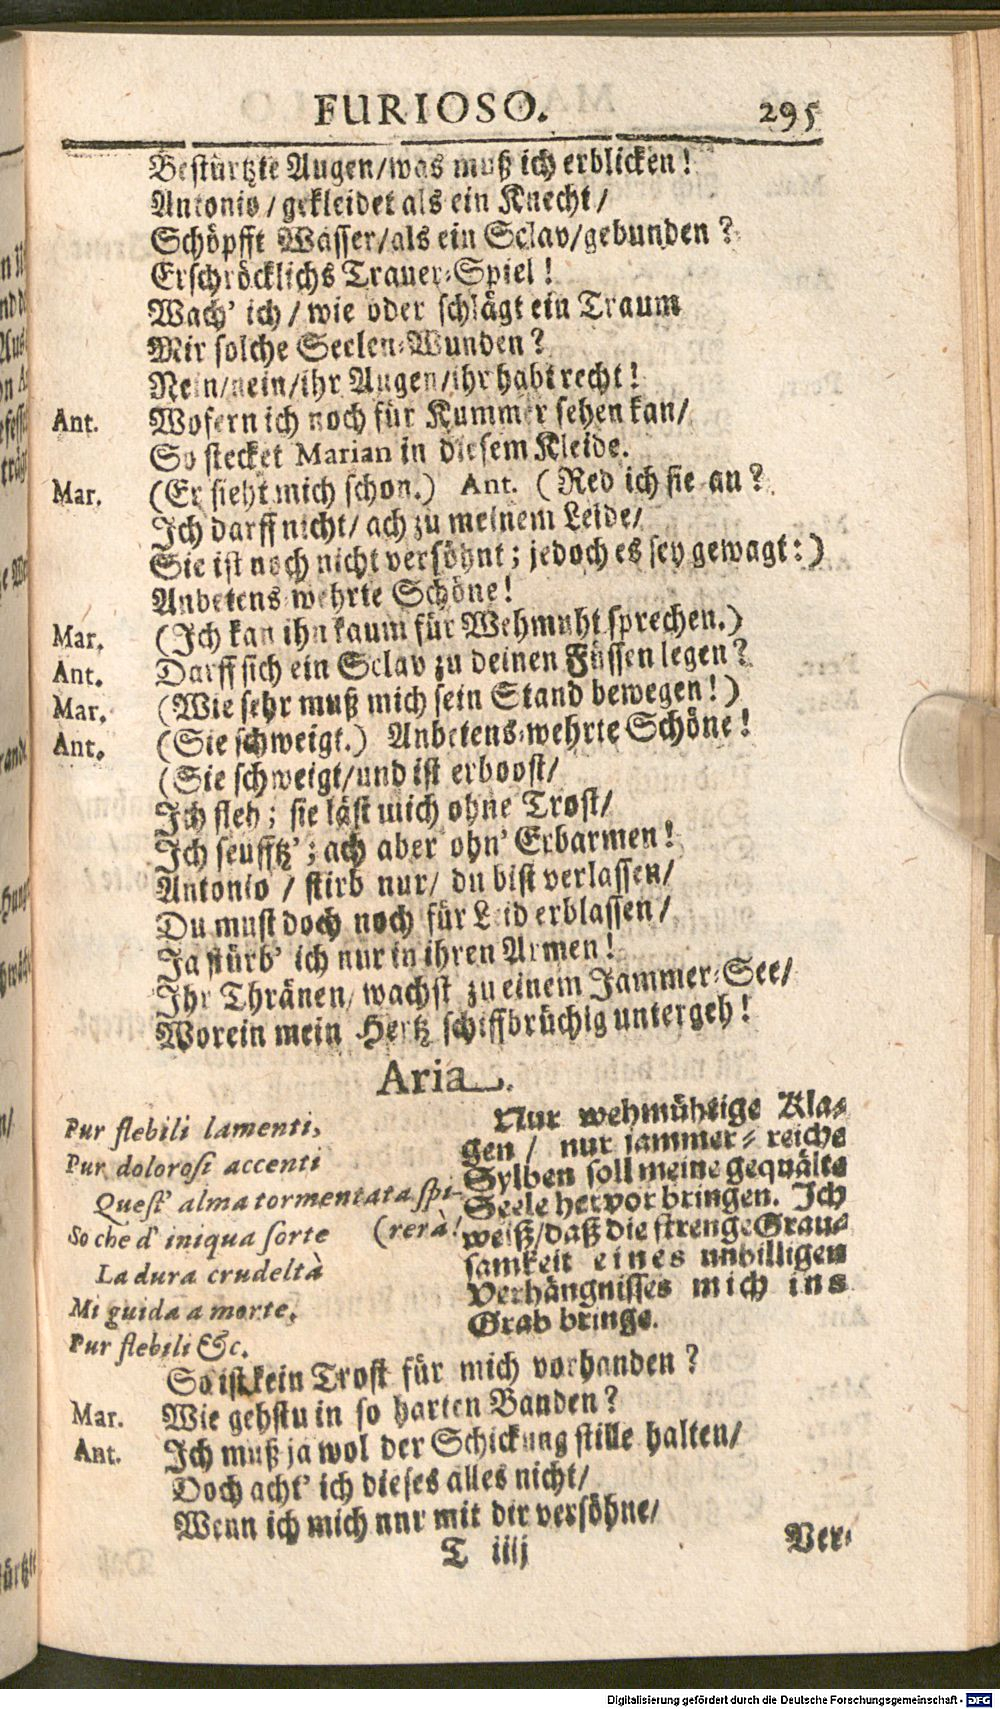 FURIOSO. 295
Bestürtzte Augen/was muß ich erblicken!
Antonio/gekleidet als ein Knecht/
Schöpfft Wasser/als ein Sclav/gebunden?
Erschröcklichs Trauer-Spiel!
Wach' ich/wie oder schlägt ein Traum
Mir solche Seelen-Wunden?
Nein/nein/ihr Augen/ihr habt recht!
Ant. Wofern ich noch für Kummer sehen kan/
So stecket Marian in diesem Kleide.
Mar. (Er sieht mich schon.) Ant. (Red ich sie an?
Ich darff nicht/ach zu meinem Leide/
Sie ist noch nicht versöhnt; jedoch es sey gewagt:)
Anbetens-wehrte Schöne!
Mar. (Ich kan ihn kaum für Wehmuht sprechen.)
Ant. Darff sich ein Sclav zu deinen Füssen legen?
Mar. (Wie sehr muß mich sein Stand bewegen!)
Ant. (Sie schweigt.) Anbetens-wehrte Schöne!
(Sie schweigt/und ist erboost/
Ich fleh; sie läst mich ohne Trost/
Ich seufftz'; ach aber ohn' Erbarmen!
Antonio/stirb nur/du bist verlassen/
Du must doch noch für Leid erblassen/
Ja stürb' ich nur in ihren Armen!
Ihr Thränen/wachst zu einem Jammer-See/
Worein mein Hertz schiffbrüchig untergeh!
Aria.
Pur flebili lamenti,
Pur dolorosi accenti
Quest' alma tormentata spi-
(rerà!
So che d' iniqua sorte
La dura crudeltà
Mi guida a morte,
Pur flebili &c.
Nur wehmühtige Kla-
gen/nur jammer-reiche
Sylben soll meine gequälte
Seele hervorbringen. Ich
weiß/daß die strenge Grau-
samkeit eines unbilligen
Verhängnisses mich ins
Grab bringe.
So ist kein Trost für mich vorhanden?
Mar. Wie gehstu in so harten Banden?
Ant. Ich muß ja wol der Schickung stille halten/
Doch acht' ich dieses alles nicht/
Wenn ich mich nur mit dir versöhne/
T iiij Ver-
Digitalisierung gefördert durch die Deutsche Forschungsgemeinschaft - DFG